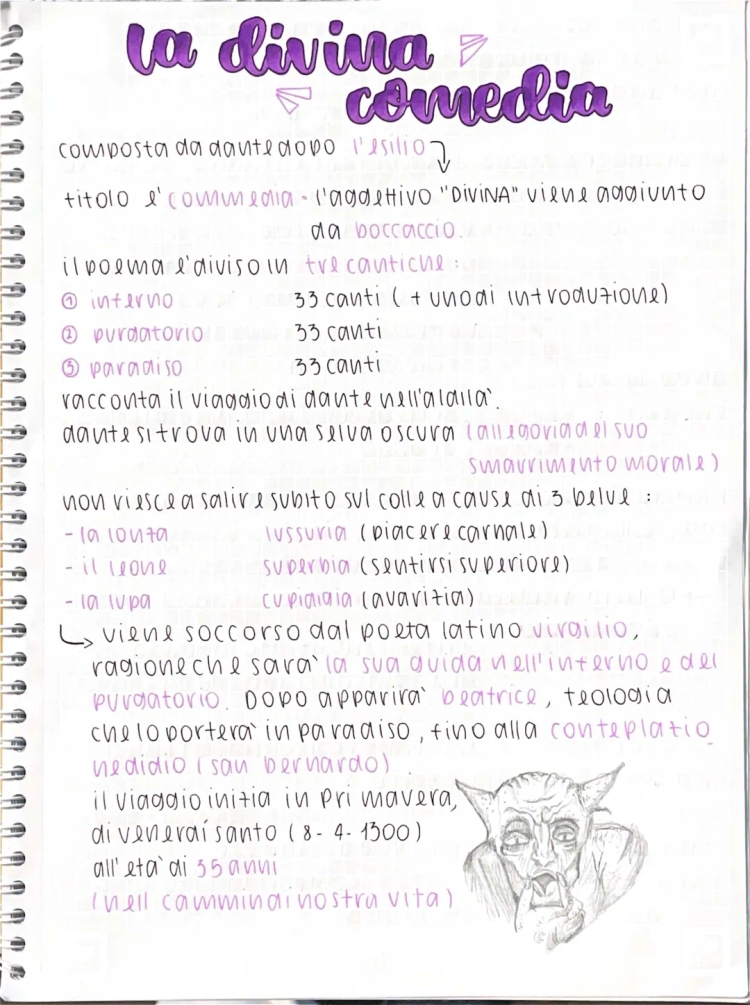 la divina
comedia
composta da dante dopo l'esilio
titolo e' commedia - l'aggettivo "DIVINA" viene aggiunto
da boccaccio.
il poema e' diviso in tre cantiche:
① inferno 33 canti (+ uno di introduzione)
② purgatorio 33 canti
③ paradiso 33 canti
racconta il viaggio di dante nell'aldilà.
dante si trova in una selva oscura (allegoria del suo
smarrimento morale)
non riesce a salire subito sul colle a cause di 3 belve:
- la lonza lussuria (piacere carnale)
- il leone superbia (sentirsi superiore)
- la lupa cupidigia (avarizia)
viene soccorso dal poeta latino virgilio,
ragione che sarà la sua guida nell'inferno e del
purgatorio. Dopo apparirà beatrice, teologia
che lo porterà in paradiso, fino alla conteplazio
ne di dio (san bernardo)
il viaggio inizia in primavera,
di venerdí santo (8-4-1300)
all'età di 35 anni
(nell cammin di nostra vita)